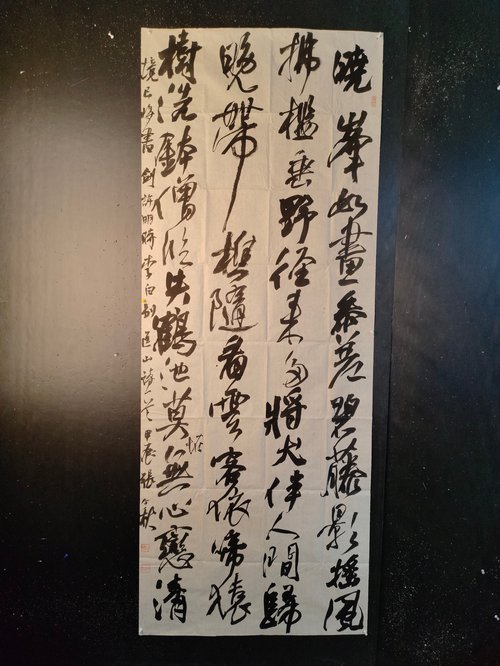 曉峯如畫參差碧藤影搖風
拂檻垂野徑来多將犬伴人間歸
晚帶樵隨看雲客依啼猿
樹洗鉢僧臨失鶴池莫怪無心戀清
境已將書劍許明時李白別匡山詩 甲辰張秋